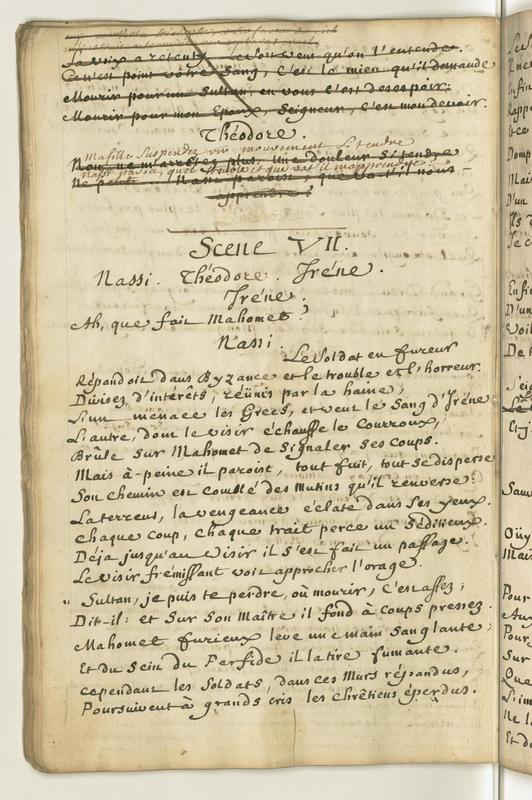 La voix a retenti, veulent qu'on l'entende.
Ce n'est point votre Sang, C'est le mien qu'il demande
Mourir pour un Sultan, en vous c'est desespoir:
Mourir pour mon Epoux, Seigneur, C'est mon devoir.
Théodore.
Ma fille Suspendez vos mouvement Si tendre
Non, ne m'arrêtez plus. Une douleur Si tendre
Nassi paroit, quel trouble et que vat il m'apprendre?
Ne peut Nassi paroist, que va t'il nous
apprendre?
Scene VII.
Nassi. Théodore. Iréne.
Iréne.
Ah, que fait Mahomet?
Nassi.
Le Soldat en fureur
Répandoit dans Byzance et le trouble et l'horreur.
Divisez d'interêts, réünis par la haine;
L'un menace les Grecs, et veut le Sang d'Iréne
L'autre, dont le visir échauffe le Courroux,
Brûle sur Mahomet de Signaler Ses coups.
Mais à-peine il paroist, tout fuit, tout se disperse
Son chemin est comblé des mutins qu'il renverse:
La terreur, la vengeance éclate dans Ses yeux.
Chaque coup, chaque trait perce un Séditieux.
Déja jusqu'au visir il s'est fait un passage.
Le visir frémissant voit approcher l'orage.
" Sultan, je puis te perdre, où mourir, C'est assez;
Dit-il: et Sur Son Maître il fond à coups pressez.
Mahomet furieux léve une main Sanglante;
Et du Sein du Perfide il la tire fumante.
Cependant les Soldats, dans ces Murs répandus,
Poursuivent à grands cris les Chrêtiens éperdus.